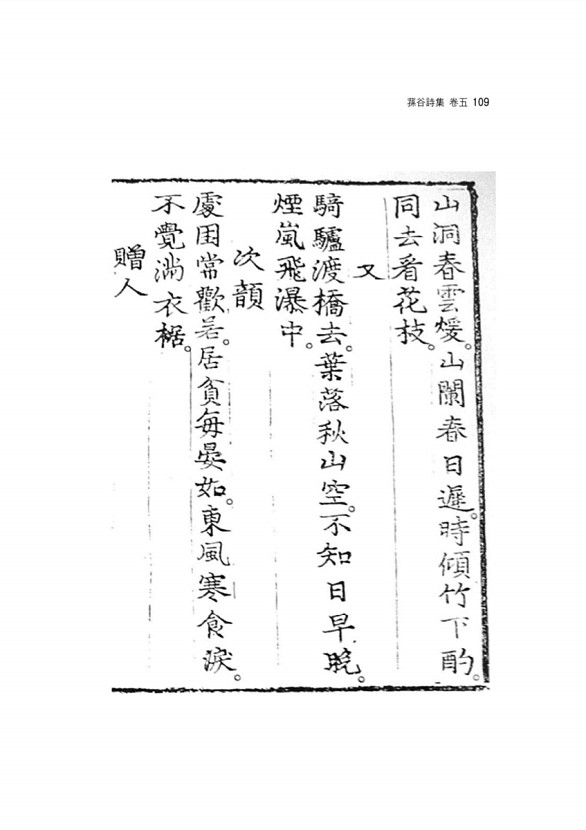 蓀谷詩集 卷五 109
山洞春雲煖。山闌春日遲。時傾竹下酌。
同去看花技。
又
騎驢渡橋去。葉落秋山空。不知日早晩。
煙嵐飛瀑中。
次韻
處困常歡若。居貧每晏如。東風寒食淚。
不覺滿衣裾。
贈人